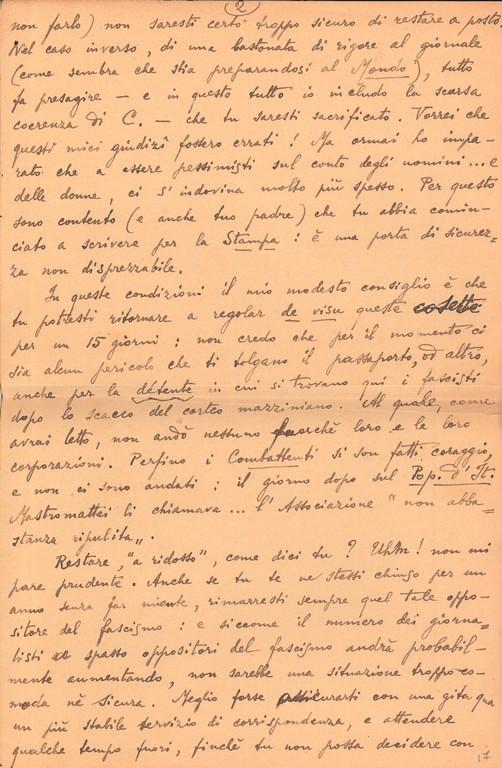 2
non farlo) non saresti certo troppo sicuro di restare a posto.
Nel caso inverso, di una bastonata di rigore al giornale
(come sembra che stia preparandosi al Mondo), tutto
fa presagire – e in questo tutto io includo la scarsa
coerenza di C. – che tu saresti sacrificato. Vorrei che
questi miei giudizî fossero errati! Ma ormai ho impa-
rato che a essere pessimisti sul conto degli uomini... e
delle donne, ci s'indovina molto più spesso. Per questo
sono contento (e anche tuo padre) che tu abbia comin-
ciato a scrivere per la Stampa: è una porta di sicurez=
za non disprezzabile.
In queste condizioni il mio modesto consiglio è che
tu potresti ritornare a regolar de visu queste cosette
per un 15 giorni: non credo che per il momento ci
sia alcun pericolo che ti tolgano il passaporto, od altro,
anche per la détente in cui si trovano qui i fascisti
dopo lo scacco del corteo mazziniano. Al quale, come
avrai letto, non andò nessuno fuorchè loro e le loro
corporazioni. Perfino i Combattenti si son fatti coraggio,
e non ci sono andati: il giorno dopo sul Pop. d'It.
Mastromattei li chiamava... l'Associazione "non abba=
stanza ripulita„.
Restare, "a ridosso", come dici tu? Uhm! non mi
pare prudente. Anche se tu te ne stessi chiuso per un
anno senza far niente, rimarresti sempre quel tale oppo-
sitore del fascismo: e siccome il numero dei giorna-
listi a spasso oppositori del fascismo andrà probabil-
mente aumentando, non sarebbe una situazione troppo co-
moda nè sicura. Meglio forse assicurarti con una gita qua
un più stabile servizio di corrispondenza, e attendere
qualche tempo fuori, finchè tu non possa decidere con
17